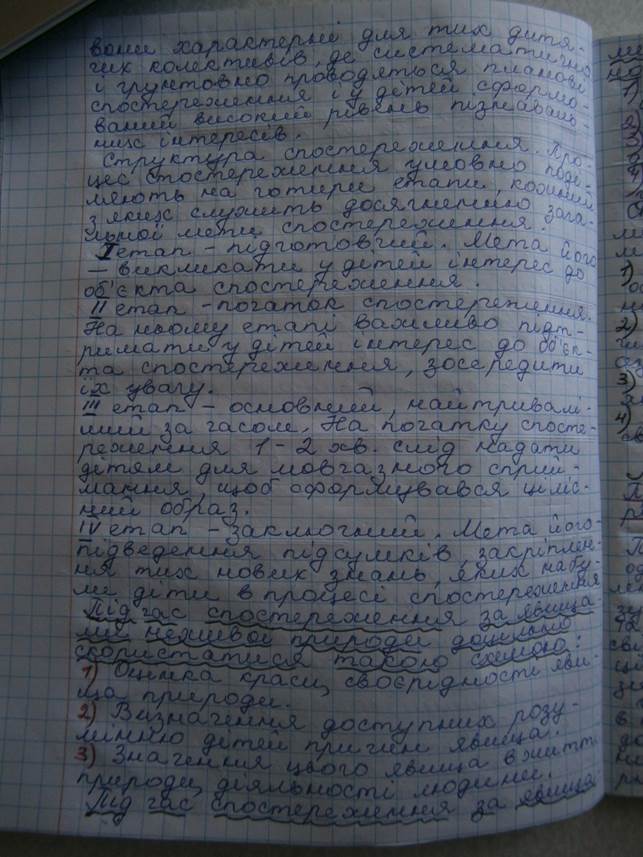 вони характерні для тих дитя-
чих колективів, де систематично
і ґрунтовно проводяться планові
спостереження і у дітей сформо-
ваний високий рівень пізнаваль-
них інтересів.
Структура спостереження. Про-
цес спостереження умовно поді-
ляють на чотири етапи, кожний
з яких служить досягненню зага-
льної мети спостереження.
I етап - підготовчий. Мета його
- викликати у дітей інтерес до
об'єкта спостереження.
II етап - початок спостереження.
На ньому етапі важливо підт-
римати у дітей інтерес до об'єк-
та спостереження, зосередити
їх увагу.
III етап - основний, найтривалі-
ший за часом. На початку спосте-
реження 1-2 хв. слід надати
дітям для мовчазного сприй-
мання, щоб сформувався цілiс-
ний образ.
IV етап - заключний. Мета його -
підведення підсумків, закріплен-
ня тих нових знань, яких набу-
ли діти в процесі спостереження
Під час спостереження за явища
ми неживої природи доцільно
скористатися такою схемою:
1) Оцінка краси, своєрідності яви-
ща природи.
2) Визначення доступних розу-
мінню дітей причин явища.
3) Значення цього явища в житті
природи, діяльності людини.
Під час спостереження за явища